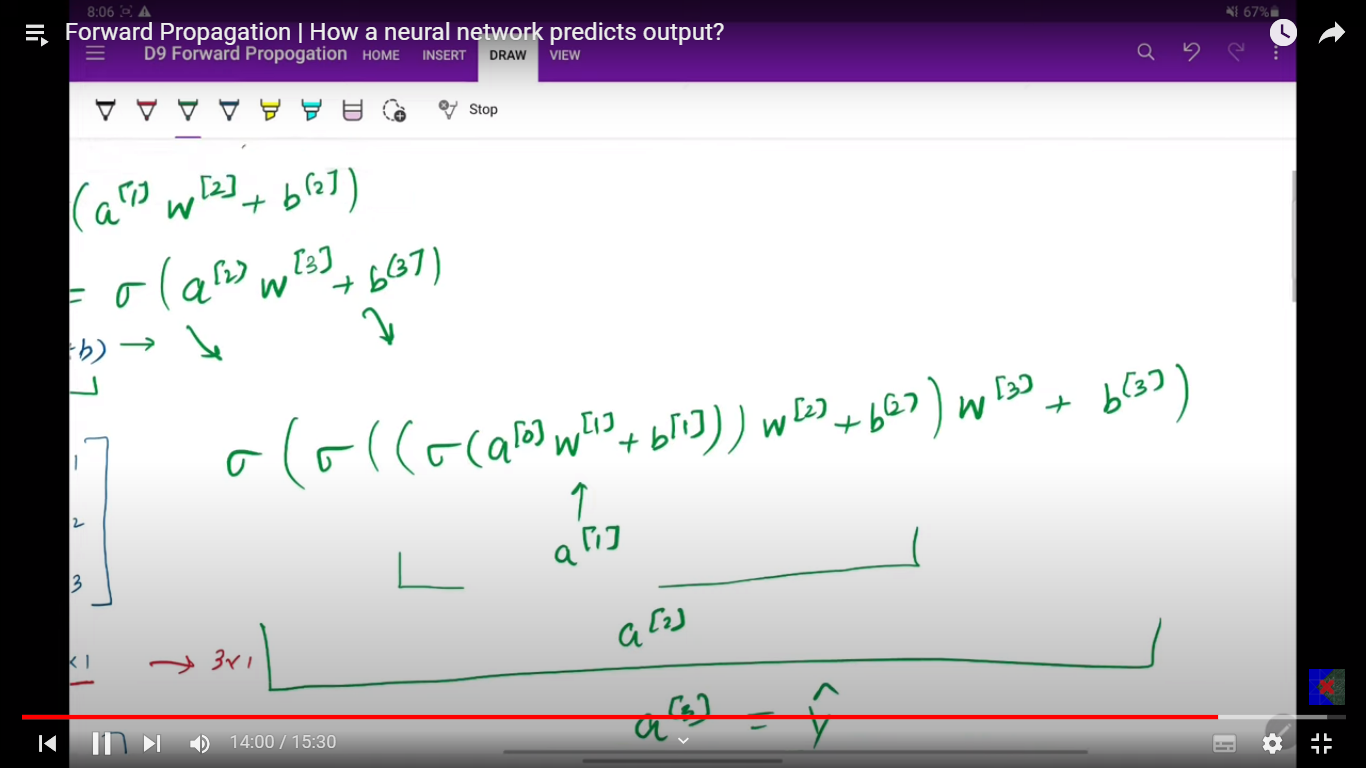 8:06
67%
Forward Propagation | How a neural network predicts output?
D9 Forward Propogation HOME INSERT DRAW VIEW
Stop
(a^[1] w^[2] + b^[2])
= σ(a^[2] w^[3] + b^[3])
+b) →
σ(σ((σ(a^[0] w^[1] + b^[1])) w^[2] + b^[2]) w^[3] + b^[3])
1
↑
2
a^[1]
3
a^[2]
x1 → 3x1
a^[3] = ŷ
14:00 / 15:30